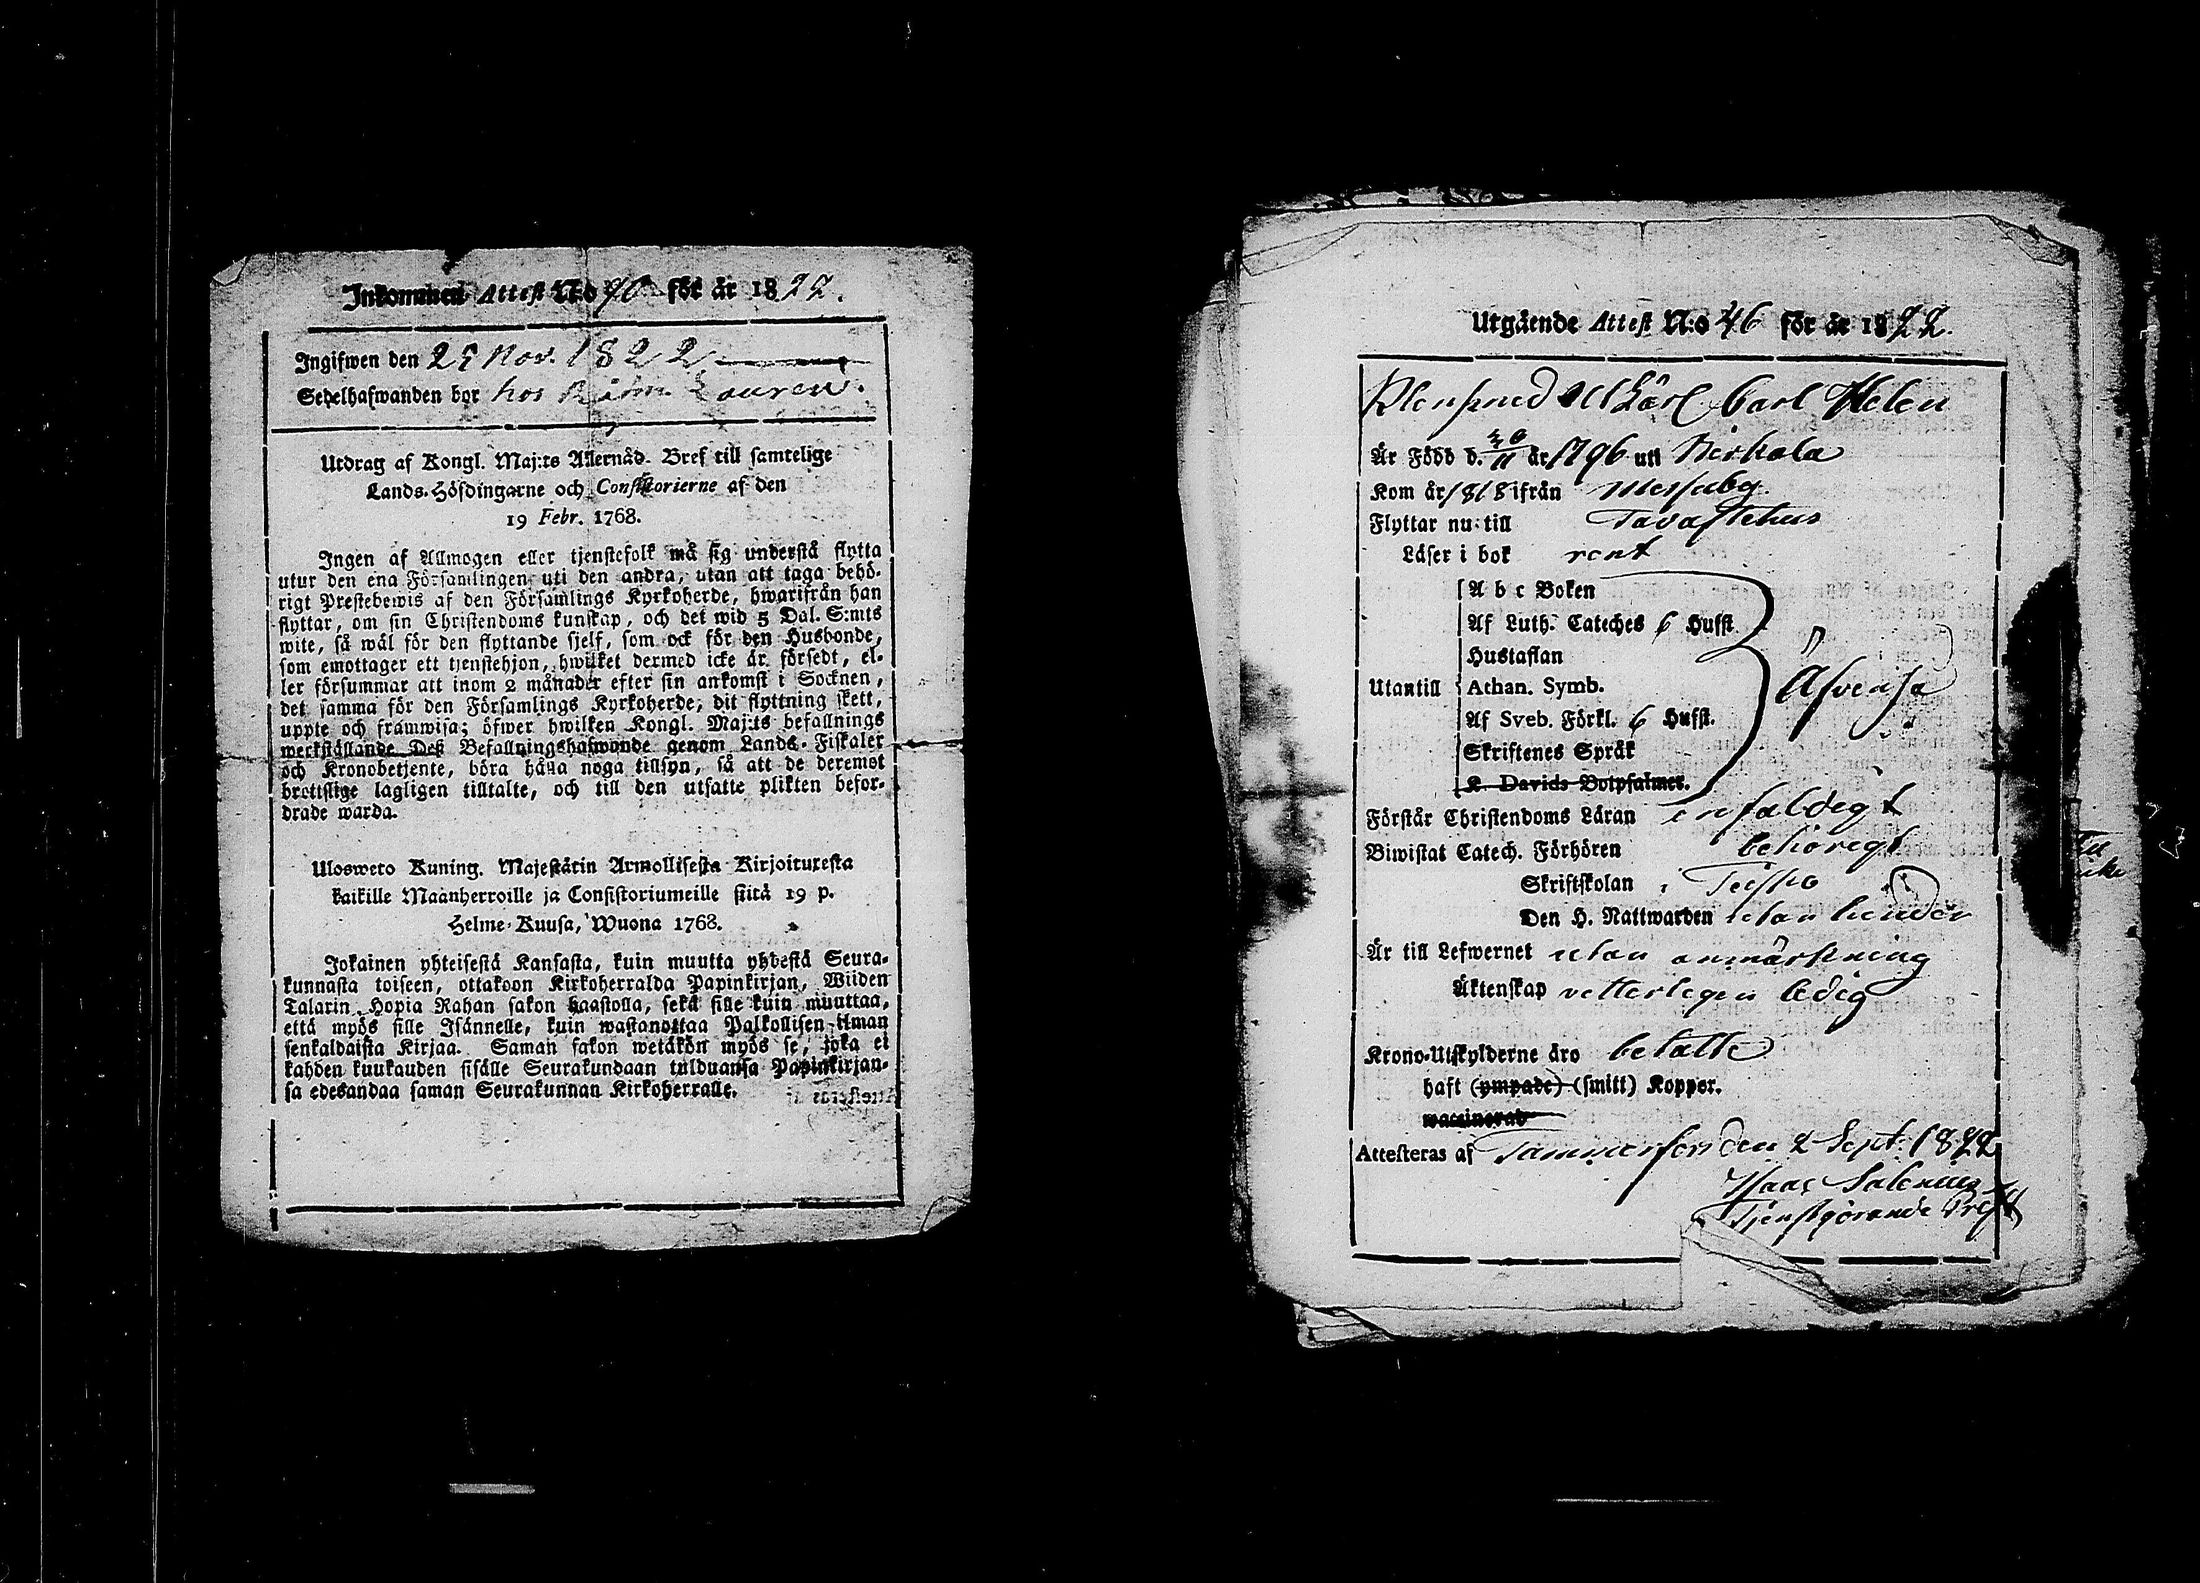 Inkommen Attest N:o 90 för år 1822.
Ingifwen den 29 Nov. 1822
Sedelhafwanden bor hos Lauren.
Utdrag af Kongl. Maj:ts Allernåd. Bref till samtelige
Lands-Höfdingarne och Consistorierne af den
19 Febr. 1768.
Ingen af Allmogen eller tjenstefolk må sig understå flytta
utur den ena Församlingen uti den andra, utan att taga behö-
rigt Prestebewis af den Församlings Kyrkoherde, hwarifrån han
flyttar, om sin Christendoms kunskap, och det wid 5 Dal. S:mts
wite, så wäl för den flyttande sjelf, som ock för den Husbonde,
som emottager ett tjenstehjon, hwilket dermed icke är försedt, el-
ler försummar att inom 2 månader efter sin ankomst i Socknen,
det samma för den Församlings Kyrkoherde, dit flyttning skett,
uppte och framwisa; öfwer hwilken Kongl. Maj:ts befallnings
werkställande Deß Befallningshafwonde genom Lands-Fiskaler
och Kronobetjente, böra hålla noga tillsyn, så att de deremot
brottslige lagligen tilltalte, och till den utsatte plikten befor-
drade warda.
Ulosweto Kuning. Majestätin Armollisesta Kirjoituxesta
kaikille Maanherroille ja Consistoriumeille siitä 19 p.
Helme-Kuusa, Wuona 1768.
Jokainen yhteisestä Kansasta, kuin muutta yhdestä Seura-
kunnasta toiseen, ottakoon Kirkoherralda Papinkirjan, Wiiden
Talarin Hopia Rahan sakon haastolla, sekä sille kuin muuttaa,
että myös sille Isännelle, kuin wastanottaa Palkollisen ilman
senkaldaista Kirjaa. Saman sakon wetäkön myös se, joka ei
kahden kuukauden sisälle Seurakundaan tulduansa Papinkirjan-
sa edesandaa saman Seurakunnan Kirkoherralle.
Utgående Attest N:o 46 för år 1822.
Carl Helen
Är Född d. 26/11 år 1796 uti Birkala
Kom år 1818 ifrån Messuby
Flyttar nu till Tavastehus
Läser i bok rent
Utantill
A b c Boken
Af Luth. Cateches 6 Hufst.
Hustaflan
Athan. Symb.
Af Sveb. Förkl. 6 Hufst.
Skriftenes Språk
K. Davids Botpsalmer.
Äfvenså
Förstår Christendoms Läran enfaldigt
Biwistat Catech. Förhören behörigt
Skriftskolan
Den H. Nattwarden utan hinder
Är till Lefwernet utan anmärkning
Äktenskap vetterligen ledig
Krono-Utskylderne äro betalte
haft (ympade) (smitt) Koppor.
waccinerad
Attesteras af Tammerfors den 2 Sept. 1822
Isaac Salenius
Tjenstgörande Prest